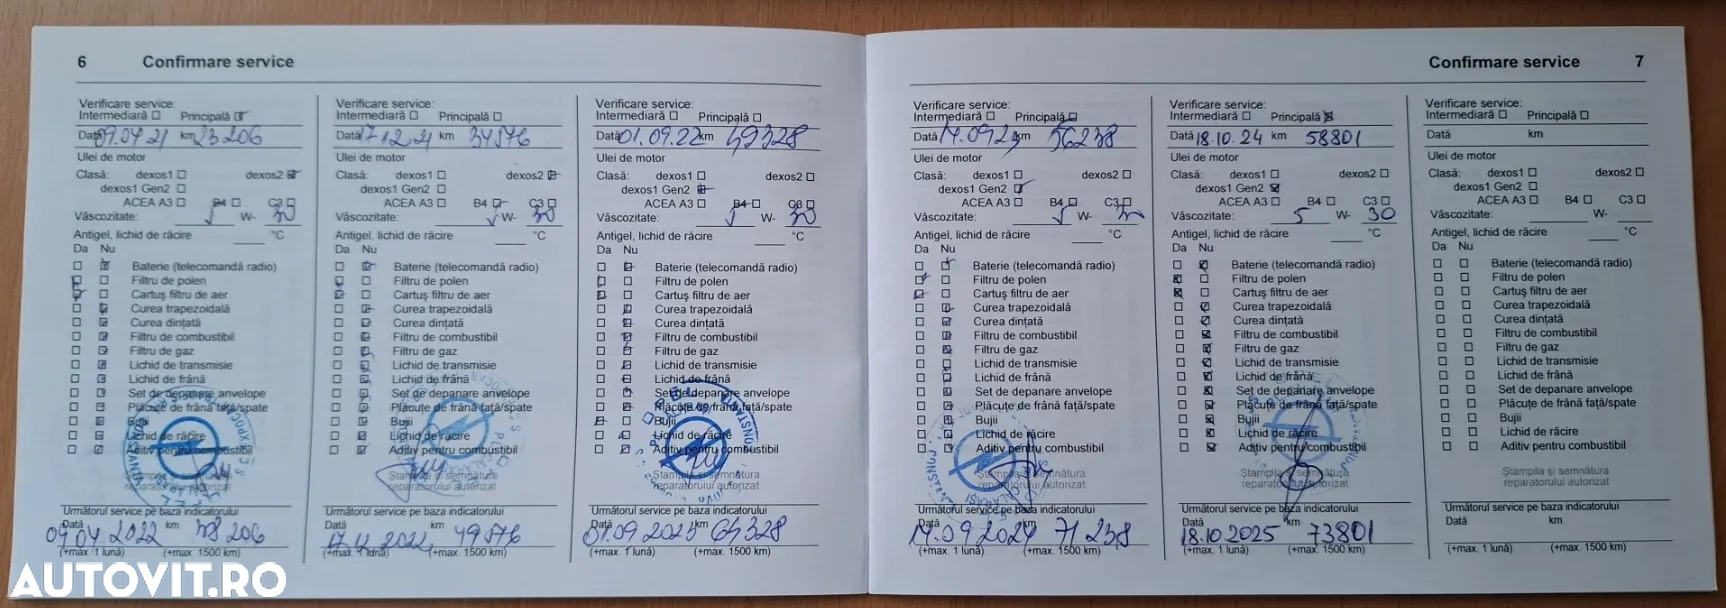 6 Confirmare service
Verificare service:
Intermediară Principală
Data 09.04 21 km 23 206
Ulei de motor
Clasă: dexos1 dexos2
dexos1 Gen2
ACEA A3 B4 C3
Vâscozitate: 5 W- 30
Antigel, lichid de răcire °C
Da Nu
Baterie (telecomandă radio)
Filtru de polen
Cartuş filtru de aer
Curea trapezoidală
Curea dinţată
Filtru de combustibil
Filtru de gaz
Lichid de transmisie
Lichid de frână
Set de depanare anvelope
Plăcuţe de frână faţă/spate
Bujii
Lichid de răcire
Aditiv pentru combustibil
Ştampila şi semnătura
reparatorului autorizat
Următorul service pe baza indicatorului
Dată km
09 04 2022 38 206
(+max. 1 lună) (+max. 1500 km)
Verificare service:
Intermediară Principală
Dată 17 12 21 km 34576
Ulei de motor
Clasă: dexos1 dexos2
dexos1 Gen2
ACEA A3 B4 C3
Vâscozitate: 5 W- 30
Antigel, lichid de răcire °C
Da Nu
Baterie (telecomandă radio)
Filtru de polen
Cartuş filtru de aer
Curea trapezoidală
Curea dinţată
Filtru de combustibil
Filtru de gaz
Lichid de transmisie
Lichid de frână
Set de depanare anvelope
Plăcuţe de frână faţă/spate
Bujii
Lichid de răcire
Aditiv pentru combustibil
Ştampila şi semnătura
reparatorului autorizat
Următorul service pe baza indicatorului
Dată km
49576
(+max. 1 lună) (+max. 1500 km)
Verificare service:
Intermediară Principală
Dată 01.09.22 km 49328
Ulei de motor
Clasă: dexos1 dexos2
dexos1 Gen2
ACEA A3 B4 C3
Vâscozitate: 5 W- 30
Antigel, lichid de răcire °C
Da Nu
Baterie (telecomandă radio)
Filtru de polen
Cartuş filtru de aer
Curea trapezoidală
Curea dinţată
Filtru de combustibil
Filtru de gaz
Lichid de transmisie
Lichid de frână
Set de depanare anvelope
Plăcuţe de frână faţă/spate
Bujii
Lichid de răcire
Aditiv pentru combustibil
Ştampila şi semnătura
reparatorului autorizat
Următorul service pe baza indicatorului
Dată km
01.09 2023 64328
(+max. 1 lună) (+max. 1500 km)
Confirmare service 7
Verificare service:
Intermediară Principală
Dată 14.09.23 km 56238
Ulei de motor
Clasă: dexos1 dexos2
dexos1 Gen2
ACEA A3 B4 C3
Vâscozitate: 5 W- 30
Antigel, lichid de răcire °C
Da Nu
Baterie (telecomandă radio)
Filtru de polen
Cartuş filtru de aer
Curea trapezoidală
Curea dinţată
Filtru de combustibil
Filtru de gaz
Lichid de transmisie
Lichid de frână
Set de depanare anvelope
Plăcuţe de frână faţă/spate
Bujii
Lichid de răcire
Aditiv pentru combustibil
Ştampila şi semnătura
reparatorului autorizat
Următorul service pe baza indicatorului
Dată km
14.09 2024 71 238
(+max. 1 lună) (+max. 1500 km)
Verificare service:
Intermediară Principală
Dată 18.10.24 km 58801
Ulei de motor
Clasă: dexos1 dexos2
dexos1 Gen2
ACEA A3 B4 C3
Vâscozitate: 5 W- 30
Antigel, lichid de răcire °C
Da Nu
Baterie (telecomandă radio)
Filtru de polen
Cartuş filtru de aer
Curea trapezoidală
Curea dinţată
Filtru de combustibil
Filtru de gaz
Lichid de transmisie
Lichid de frână
Set de depanare anvelope
Plăcuţe de frână faţă/spate
Bujii
Lichid de răcire
Aditiv pentru combustibil
Ştampila şi semnătura
reparatorului autorizat
Următorul service pe baza indicatorului
Dată km
18.10.2025 73801
(+max. 1 lună) (+max. 1500 km)
Verificare service:
Intermediară Principală
Dată km
Ulei de motor
Clasă: dexos1 dexos2
dexos1 Gen2
ACEA A3 B4 C3
Vâscozitate: W-
Antigel, lichid de răcire °C
Da Nu
Baterie (telecomandă radio)
Filtru de polen
Cartuş filtru de aer
Curea trapezoidală
Curea dinţată
Filtru de combustibil
Filtru de gaz
Lichid de transmisie
Lichid de frână
Set de depanare anvelope
Plăcuţe de frână faţă/spate
Bujii
Lichid de răcire
Aditiv pentru combustibil
Ştampila şi semnătura
reparatorului autorizat
Următorul service pe baza indicatorului
Dată km
(+max. 1 lună) (+max. 1500 km)
AUTOVIT.RO